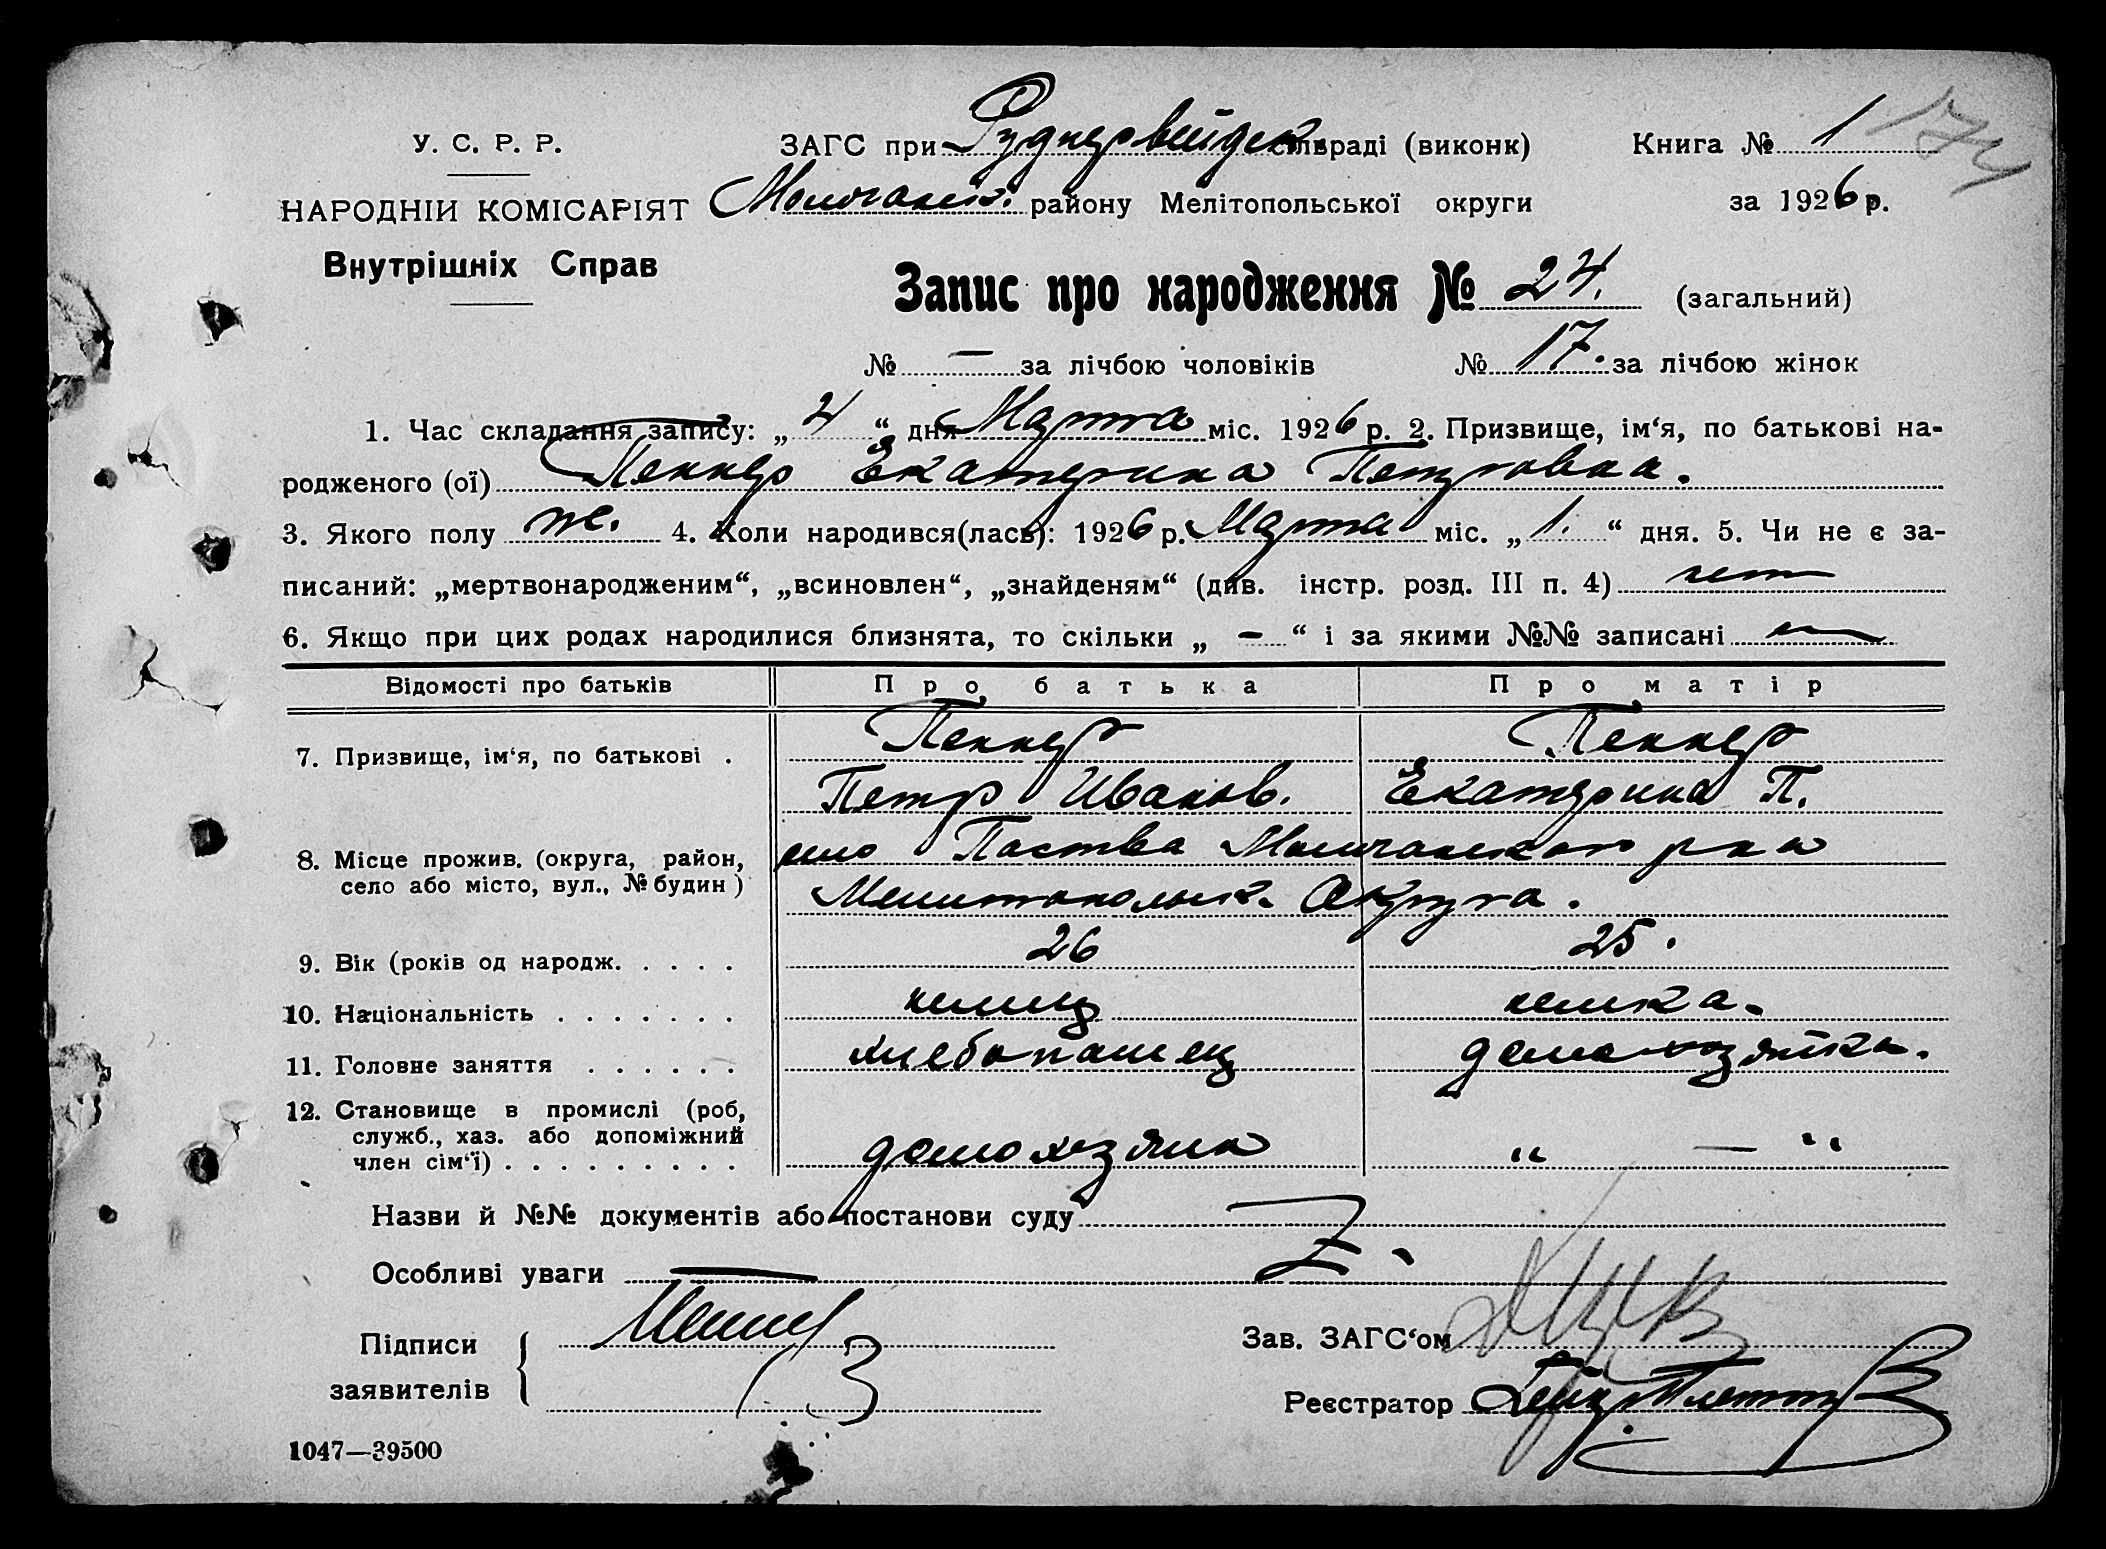 У. С. Р. Р.
ЗАГС при Руднервейдск. сільраді (виконк)
Книга № 1
174
НАРОДНІИ КОМІСАРІЯТ
Молочанск. району Мелітопольської округи
за 1926 р.
Внутрішніх Справ
Запис про народження № 24. (загальний)
№ — за лічбою чоловіків № 17. за лічбою жінок
1. Час складання запису: „ 4 “ дня Марта міс. 1926 р. 2. Призвище, ім‘я, по батькові на-
родженого (ої) Пеннер Екатерина Петровна.
3. Якого полу же. 4. Коли народився(лась): 1926 р. Марта міс. „ 1. “ дня. 5. Чи не є за-
писаний: „мертвонародженим“, „всиновлен“, „знайденям“ (див. інстр. розд. III п. 4) нет
6. Якщо при цих родах народилися близнята, то скільки „ — “ і за якими №№ записані —
Відомості про батьків Про батька Про матір
Пеннер Пеннер
7. Призвище, ім‘я, по батькові .
Петр Иванов. Екатерина П.
8. Місце прожив. (округа, район, село Паства Молочанского рна
село або місто, вул., № будин ) Мелитопольск. Округа.
9. Вік (років од народж. . . . . 26 25.
10. Національність . . . . . . . немец немка.
11. Головне заняття . . . . . . хлебопашец домохозяйка.
12. Становище в промислі (роб,
служб., хаз. або допоміжний
член сім‘ї) . . . . . . . . . домохозяин „ — “
Назви й №№ документів або постанови суду
Особливі уваги —
Підписи
заявителів
Зав. ЗАГС‘ом
Реєстратор
1047—39500